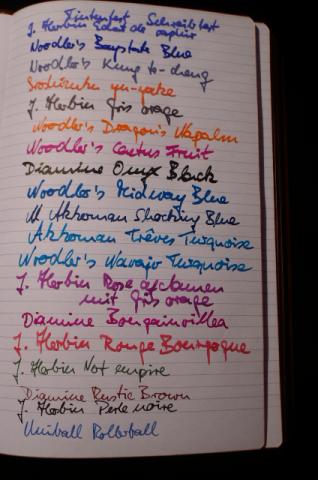 Tintentest Schreibtest
J. Herbin Eclat de saphir
Noodler's Baystate Blue
Noodler's Kung te-cheng
Iroshizuku yu-yake
J. Herbin Gris orage
Noodler's Dragon's Napalm
Noodler's Cactus Fruit
Diamine Onyx Black
Noodler's Midway Blue
Akkerman Shocking Blue
Akkerman Trêves Turquoise
Noodler's Navajo Turquoise
J. Herbin Rose cyclamen
mit Gris orage
Diamine Bougainvillea
J. Herbin Rouge Bourgogne
J. Herbin Vert empire
Diamine Rustic Brown
J. Herbin Perle noire
Uniball Rollerball